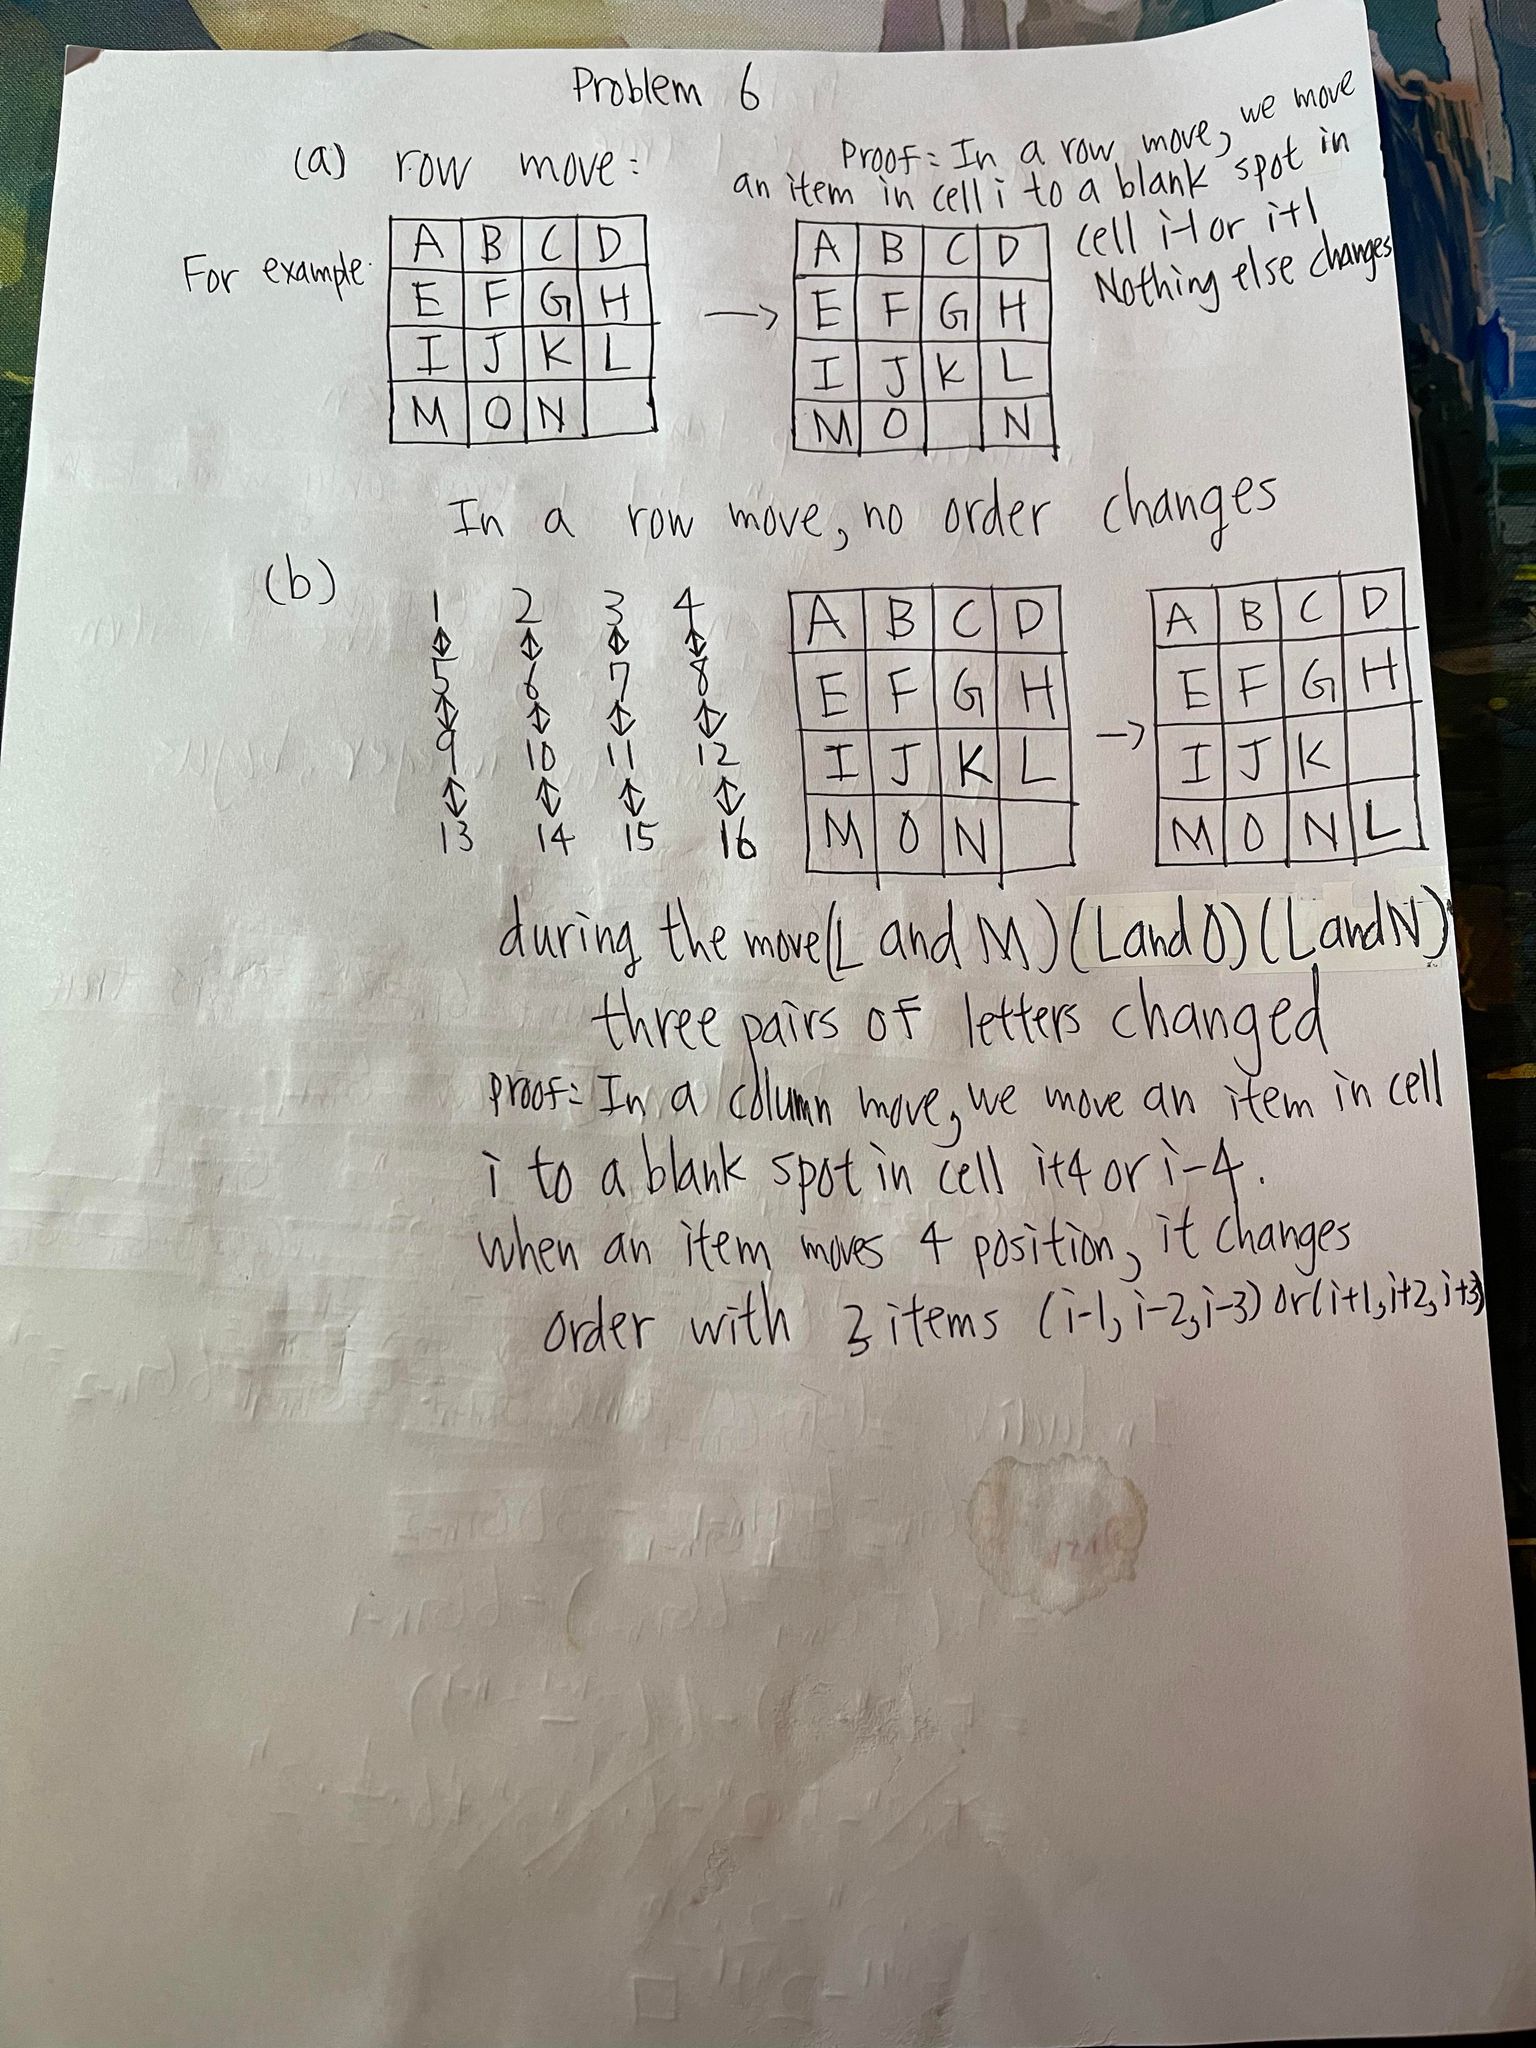 Problem 6
(a) row move:
Proof: In a row move, we move
an item in cell i to a blank spot in
cell i-1 or i+1
Nothing else changes
For example:
A B C D
E F G H
I J K L
M O N
→
A B C D
E F G H
I J K L
M O N
In a row move, no order changes
(b)
1 2 3 4
↕ ↕ ↕ ↕
5 6 7 8
↕ ↕ ↕ ↕
9 10 11 12
↕ ↕ ↕ ↕
13 14 15 16
A B C D
E F G H
I J K L
M O N
→
A B C D
E F G H
I J K
M O N L
during the move (L and M) (L and O) (L and N)
three pairs of letters changed
Proof: In a column move, we move an item in cell
i to a blank spot in cell i+4 or i-4.
when an item moves 4 position, it changes
order with 3 items (i-1, i-2, i-3) or (i+1, i+2, i+3)